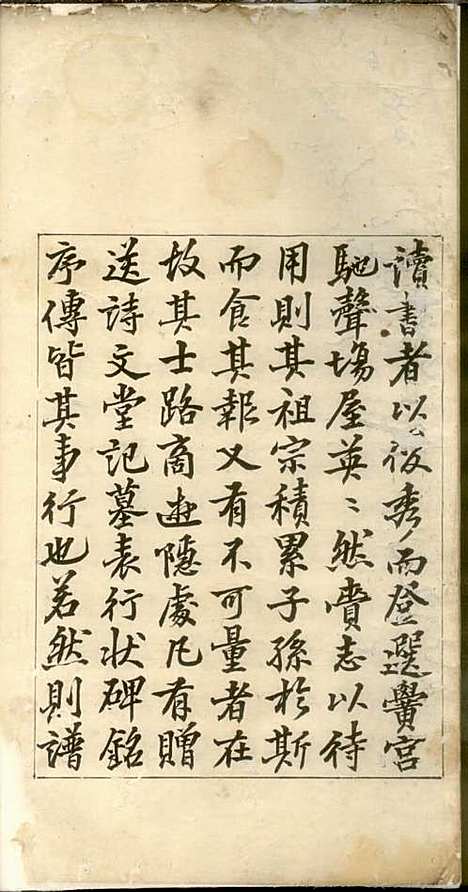 讀書者以俊秀而登選黌宮
馳聲塲屋英〻然賫志以待
用則其祖宗積累子孫於斯
而食其報又有不可量者在
故其士路商逰隱處凡有贈
送詩文堂記墓表行状碑銘
序傳皆其事行也若然則譜